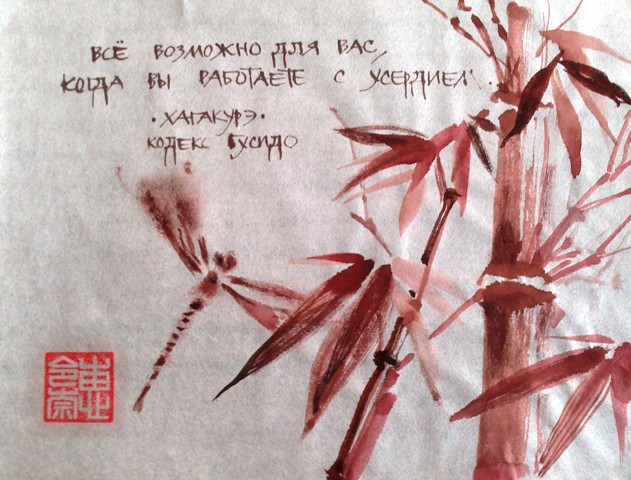 ВСЁ ВОЗМОЖНО ДЛЯ ВАС,
КОГДА ВЫ РАБОТАЕТЕ С УСЕРДИЕМ.
·ХАГАКУРЭ·
КОДЕКС БУСИДО